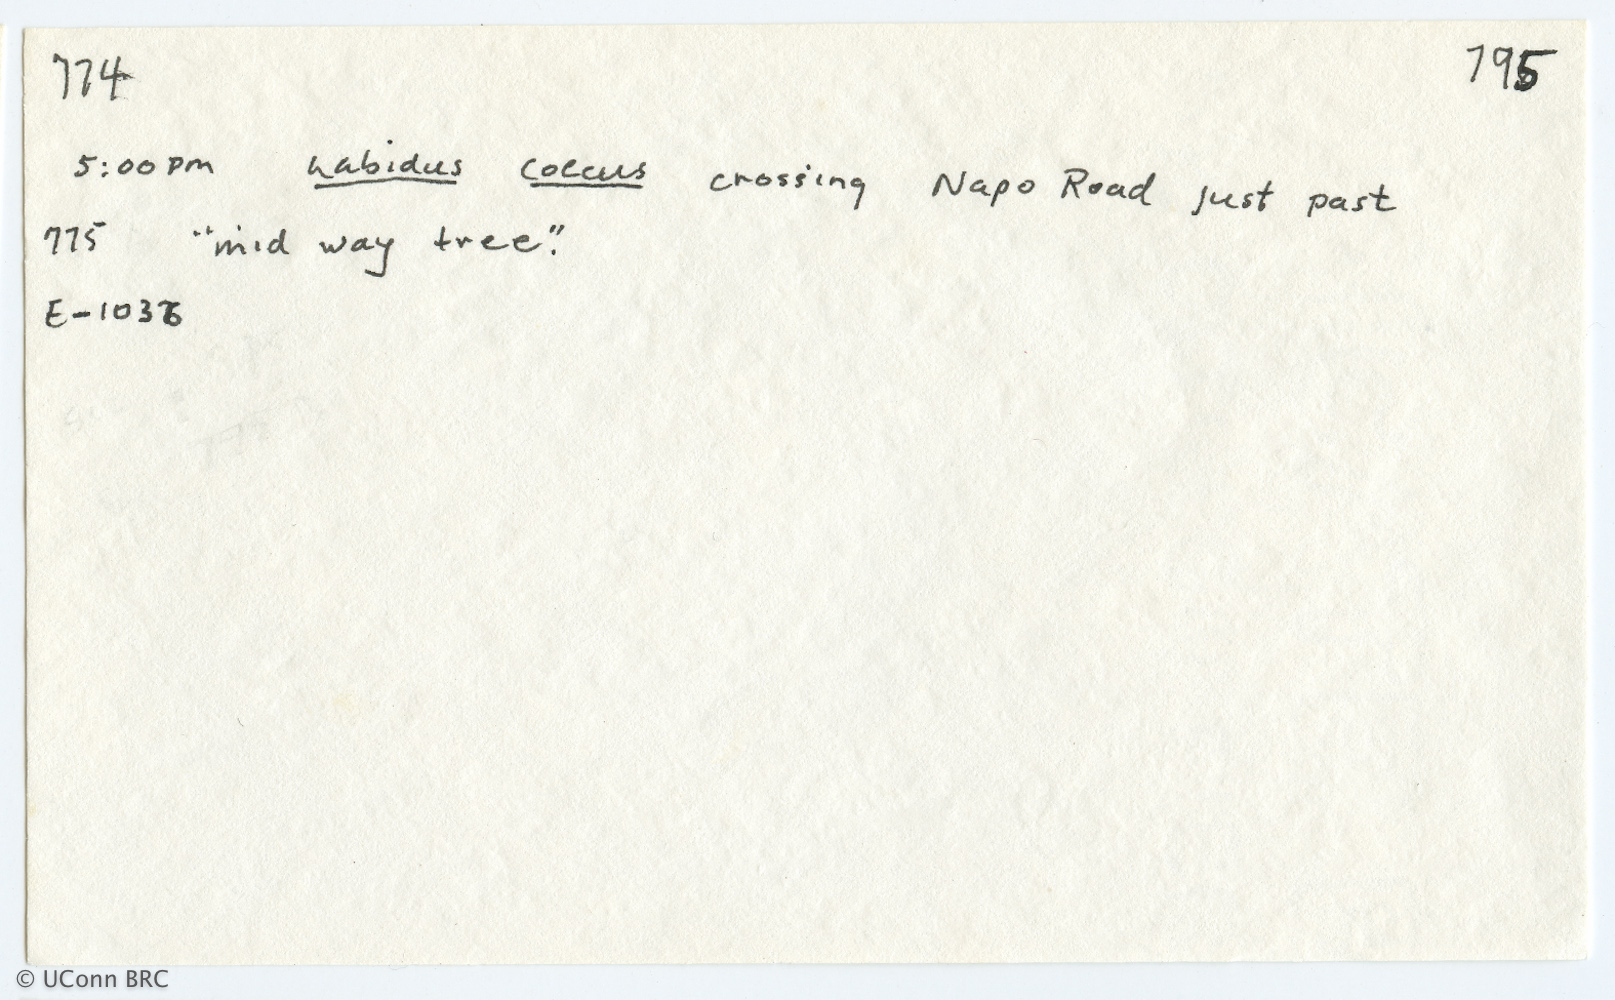 774 795
5:00 pm Labidus coecus crossing Napo Road just past
775 "mid way tree".
E-1036
© UConn BRC